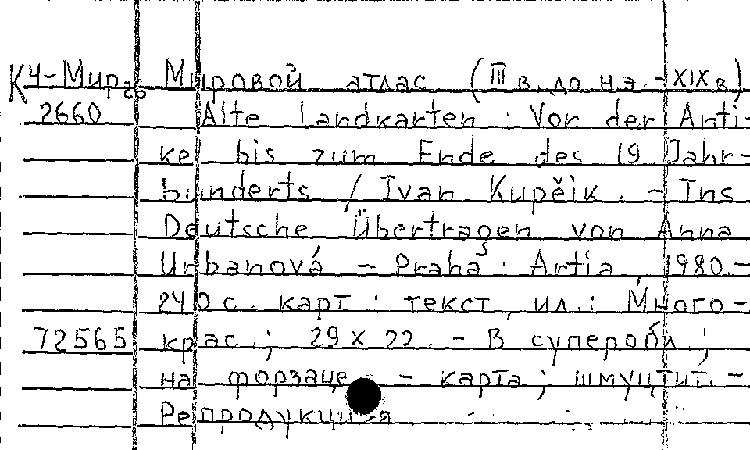 К4-Мир Мировой атлас (III в. до н.э. - XIX в)
2660 Alte Landkarten : Von der Anti-
ke bis zum Ende des 19 Jahr-
hunderts / Ivan Kupčik. - Ins
Deutsche Übertragen von Anna
Urbanová - Praha : Artia, 1980.-
240 с. карт : текст, ил.; Много-
72565 крас.; 29 x 22. - В суперобл.;
на форзаце - карта; шмуцтит. -
Репродукция